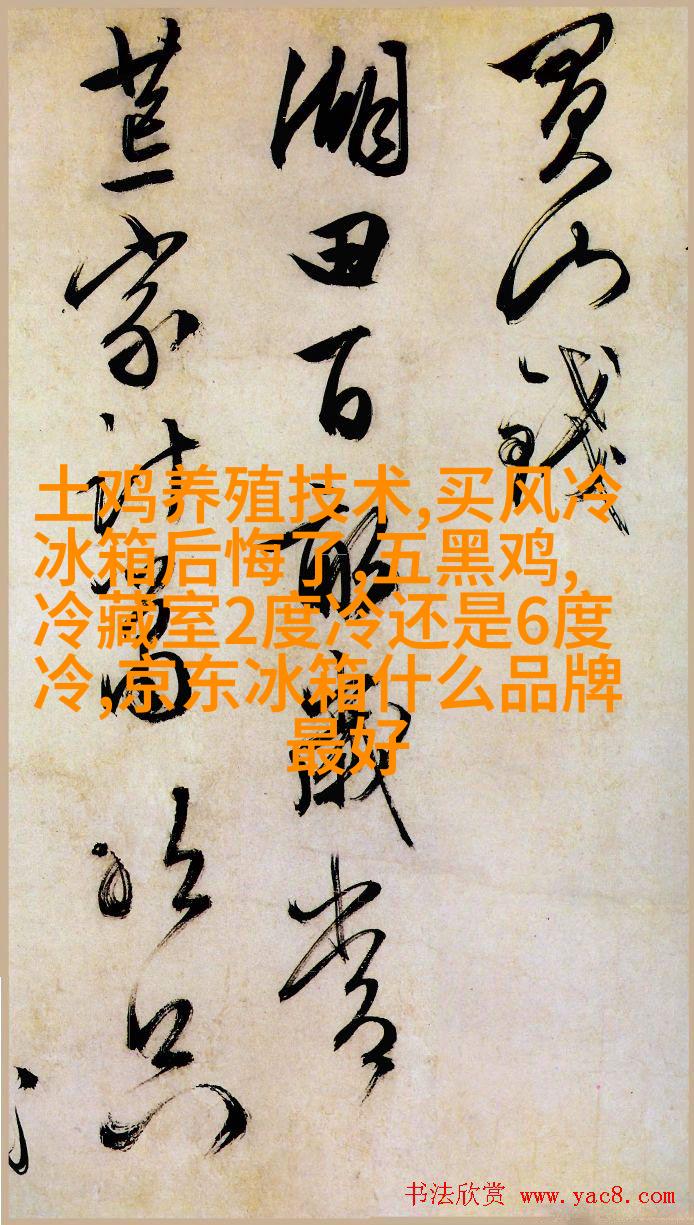 買山錢
湖田百畝歲常
荒家計只
土鸡养殖技术,买风冷
冰箱后悔了,五黑鸡,
冷藏室2度冷还是6度
冷,京东冰箱什么品牌
最好
书法欣赏 www.yac8.com